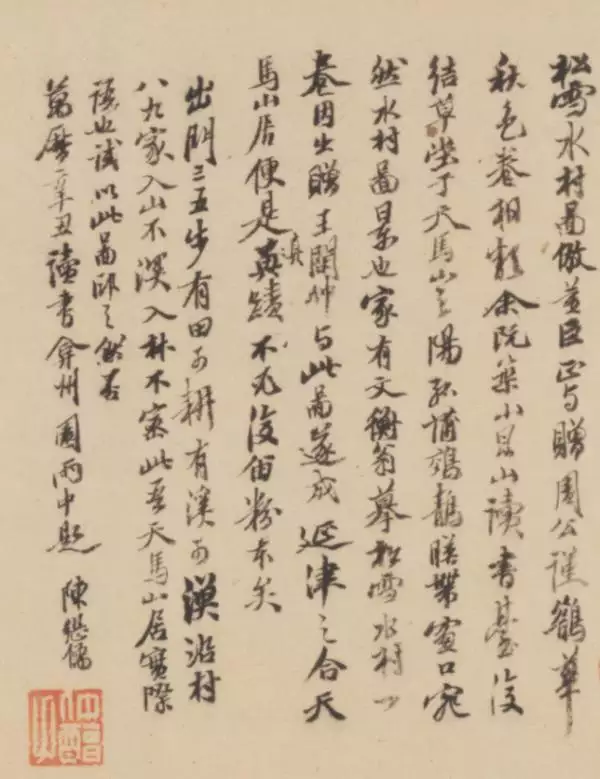 松雪水村圖倣董臣正与贈周公謹鵲華
秋色卷相類余既築小昆山讀書臺復
結草堂于天馬山之陽菰蒲映帶窗口宛
然水村圖景也家有文衡翁摹松雪水村一
卷因出贈王閑仲与此圖遂成延津之合天
馬山居便是真蹟不必復留粉本矣
出門三五步有田可耕有溪可漁沿村
八九家入山不深入林不密此吾天馬山居實際
語也試以此圖印之然否
萬曆辛丑讀書弇州園雨中題 陳繼儒